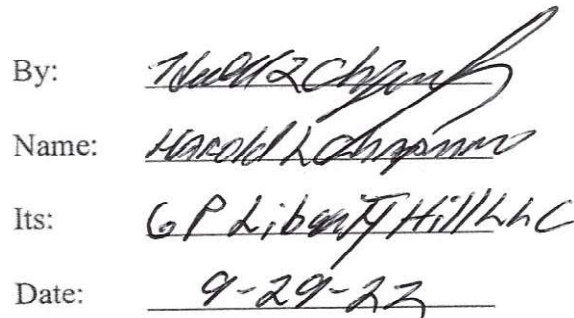 By: Harold L Chapman
Name: Harold L Chapman
Its: GP Liberty Hill LLC
Date: 9-29-22